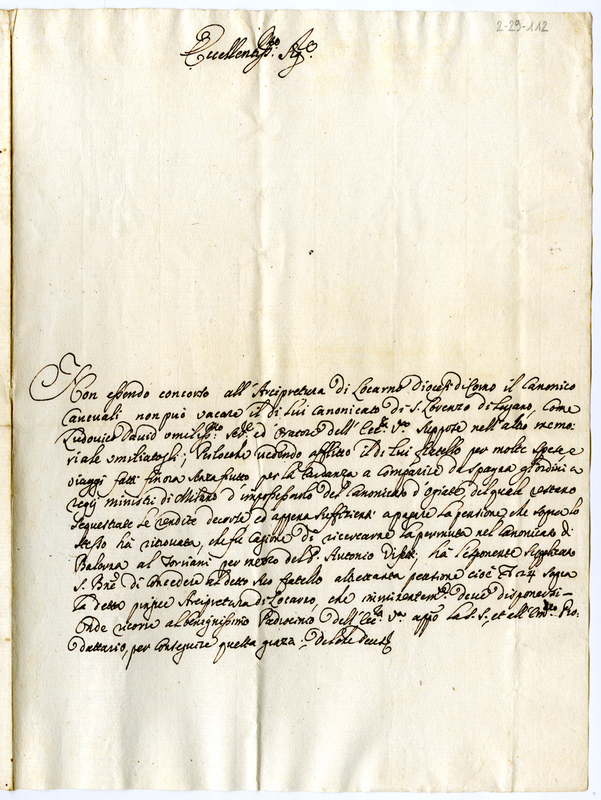 2-29-112
Eccellentis.mo Sig.re
Non essendo concorso all'Arcipretura di Locarno Diocesi di Como il Canonico
Canevali non può vacare il di lui Canonicato di S. Lorenzo di Lugano, come
Ludovico David umiliss.mo Ser.e ed Oratore dell'Ecc.a V.ra suppose nell'altro memo:
riale umiliatogli; Perloche vedendo afflitto il di lui fratello per molte spese e
viaggi fatti finora senza frutto per la tardanza a comparire da Spagna gl'ordini a
regij ministri di Milano d'impossessarlo del Canonicato d' del quale restano
sequestrate le rendite decorse ed appena sufficienti a pagare la pensione, che sopra lo
stesso hà ritrovata, che fù cagione di ricercarne la permuta nel Canonicato di
Balerna al Torriani per mezzo del P. Antonio hà l'esponente supplicato
S. B.ne di concedere al detto suo fratello altrettanta pensione cioè 24 sopra
la detta pingue Arcipretura di Locarno, che imminentem.te deve disponersi—
Onde ricorre al benignissimo Padrocinio dell'Ecc.a V.ra appo la S. S., et all'Em.mo Pro:
dattario, per conseguire questa grazia;